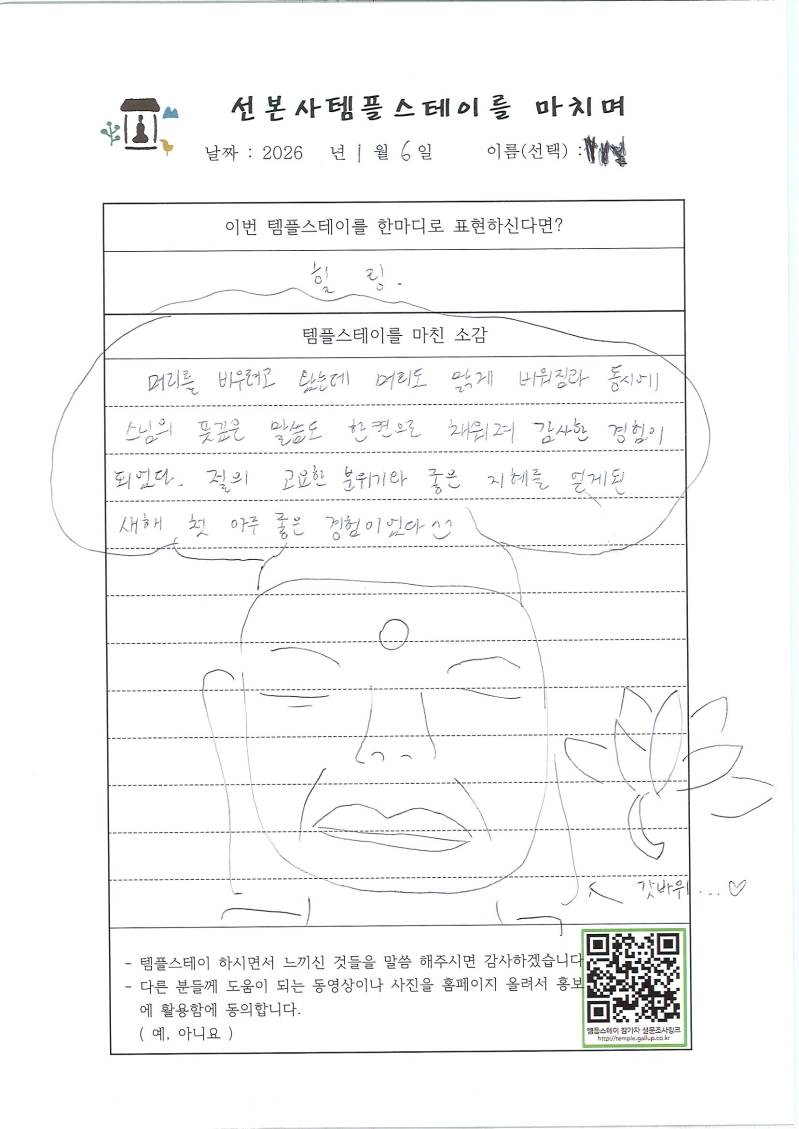 선본사템플스테이를 마치며
날짜 : 2026 년 1 월 6 일 이름(선택) :
이번 템플스테이를 한마디로 표현하신다면?
힐 링.
템플스테이를 마친 소감
머리를 비우려고 왔는데 머리도 맑게 비워짐과 동시에
스님의 뜻깊은 말씀도 한켠으로 채워져 감사한 경험이
되었다. 절의 고요한 분위기와 좋은 지혜를 얻게된
새해 첫 아주 좋은 경험이었다
갓바위...♡
- 템플스테이 하시면서 느끼신 것들을 말씀 해주시면 감사하겠습니다
- 다른 분들께 도움이 되는 동영상이나 사진을 홈페이지 올려서 홍보
에 활용함에 동의합니다.
( 예, 아니요 )
템플스테이 참가자 설문조사링크
http://temple.gallup.co.kr